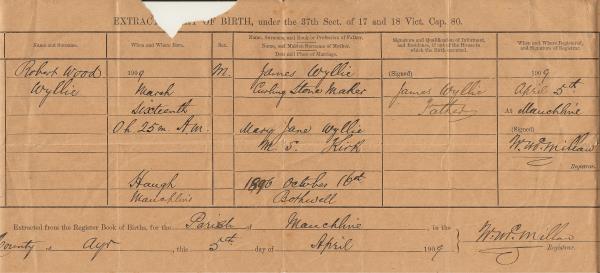 EXTRACT OF BIRTH, under the 37th Sect. of 17 and 18 Vict. Cap. 80.
Name and Surname.
When and Where Born.
Sex.
Name, Surname, and Rank or Profession of Father.
Name, and Maiden Surname of Mother.
Date and Place of Marriage.
Signature and Qualification of Informant,
and Residence, if out of the House in
which the Birth occurred.
When and Where Registered,
and Signature of Registrar.
Robert Wood
Wyllie
1909
March
Sixteenth
0h. 25m. A.M.
Haugh
Mauchline
M.
James Wyllie
Curling Stone Maker
Mary Jane Wyllie
M. S. Kirk
1896 October 16
Bothwell
(Signed)
James Wyllie
Father
1909
April 5th
At Mauchline
(Signed)
Registrar.
Extracted from the Register Book of Births, for the Parish of Mauchline, in the
County of Ayr, this 5th day of April 1909
Registrar.